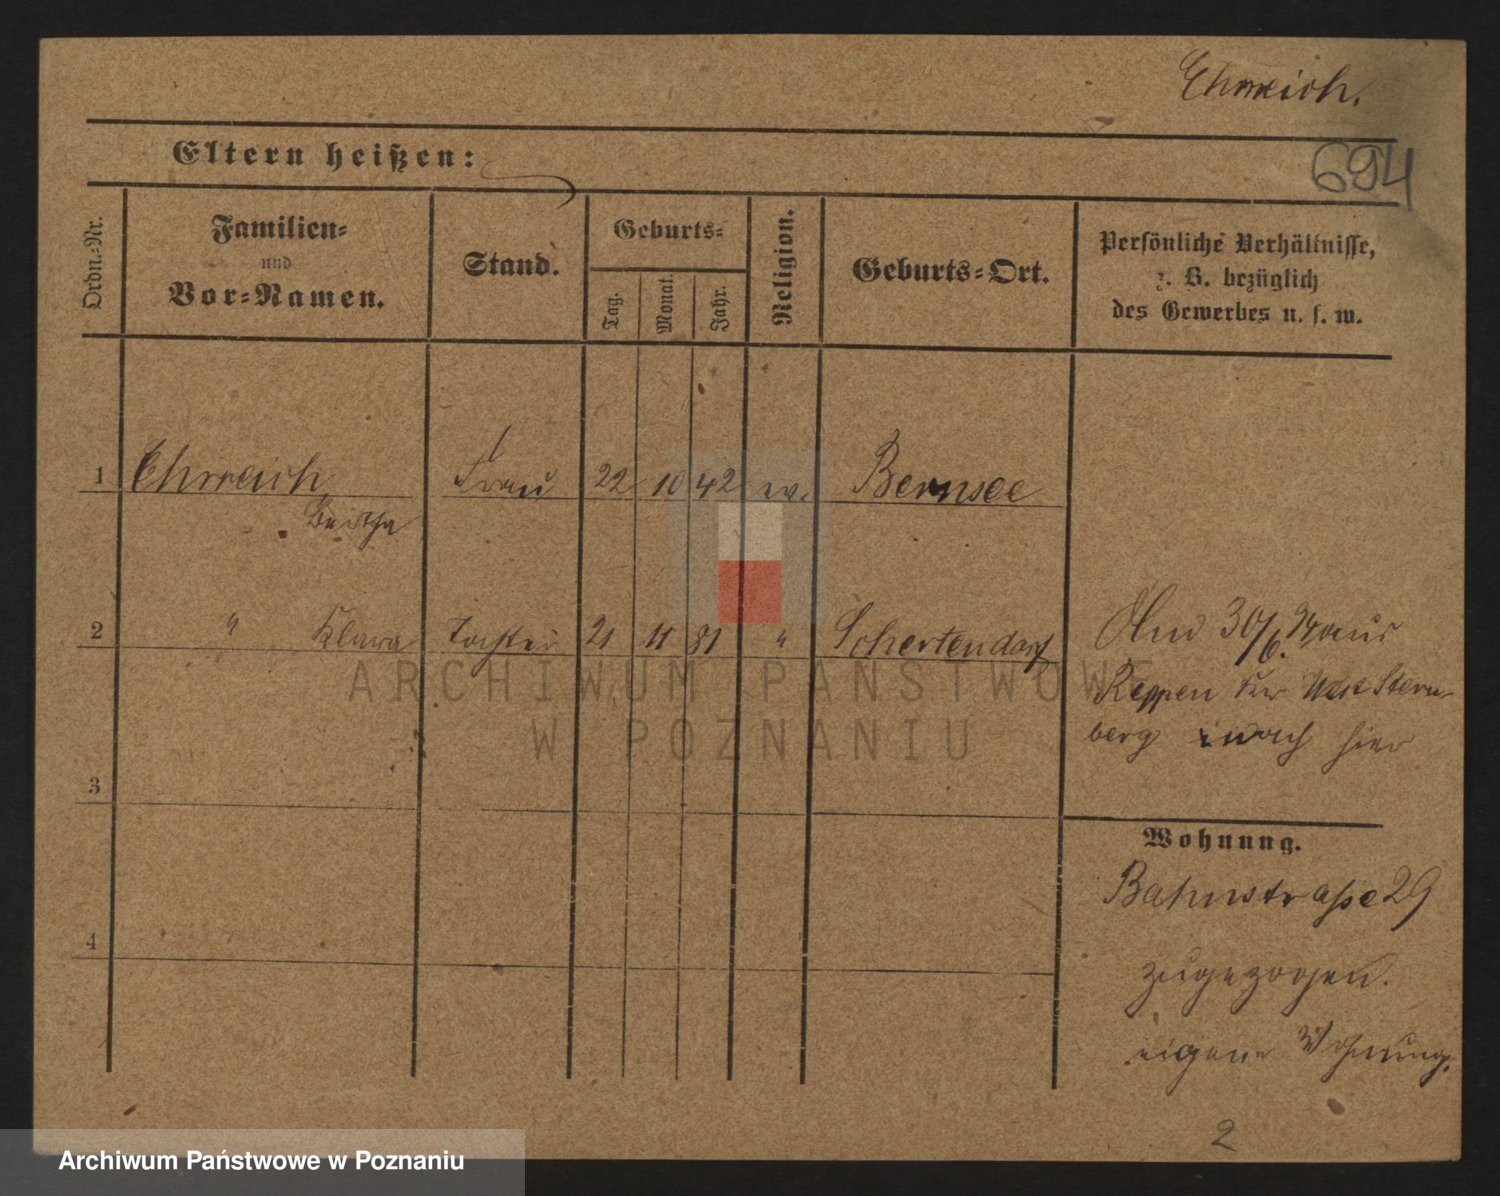 Ehrreich.
694
Eltern heißen:
Ordn.-Nr.
Familien-
und
Vor-Namen.
Stand.
Geburts-
Tag.
Monat.
Jahr.
Religion.
Geburts-Ort.
Persönliche Verhältnisse,
z. B. bezüglich
des Gewerbes u. s. w.
1 Ehrreich Frau 22 10 42 ev. Bernsee
Bertha
2 " Klara Tochter 21 11 81 " Schertendorf
30/6. 94 aus
Reppen Kr West Stern-
berg nach hier
3
Wohnung.
Bahnstraße 29
4
zugezogen.
eigene Wohnung.
2
ARCHIWUM PAŃSTWOWE
W POZNANIU
Archiwum Państwowe w Poznaniu